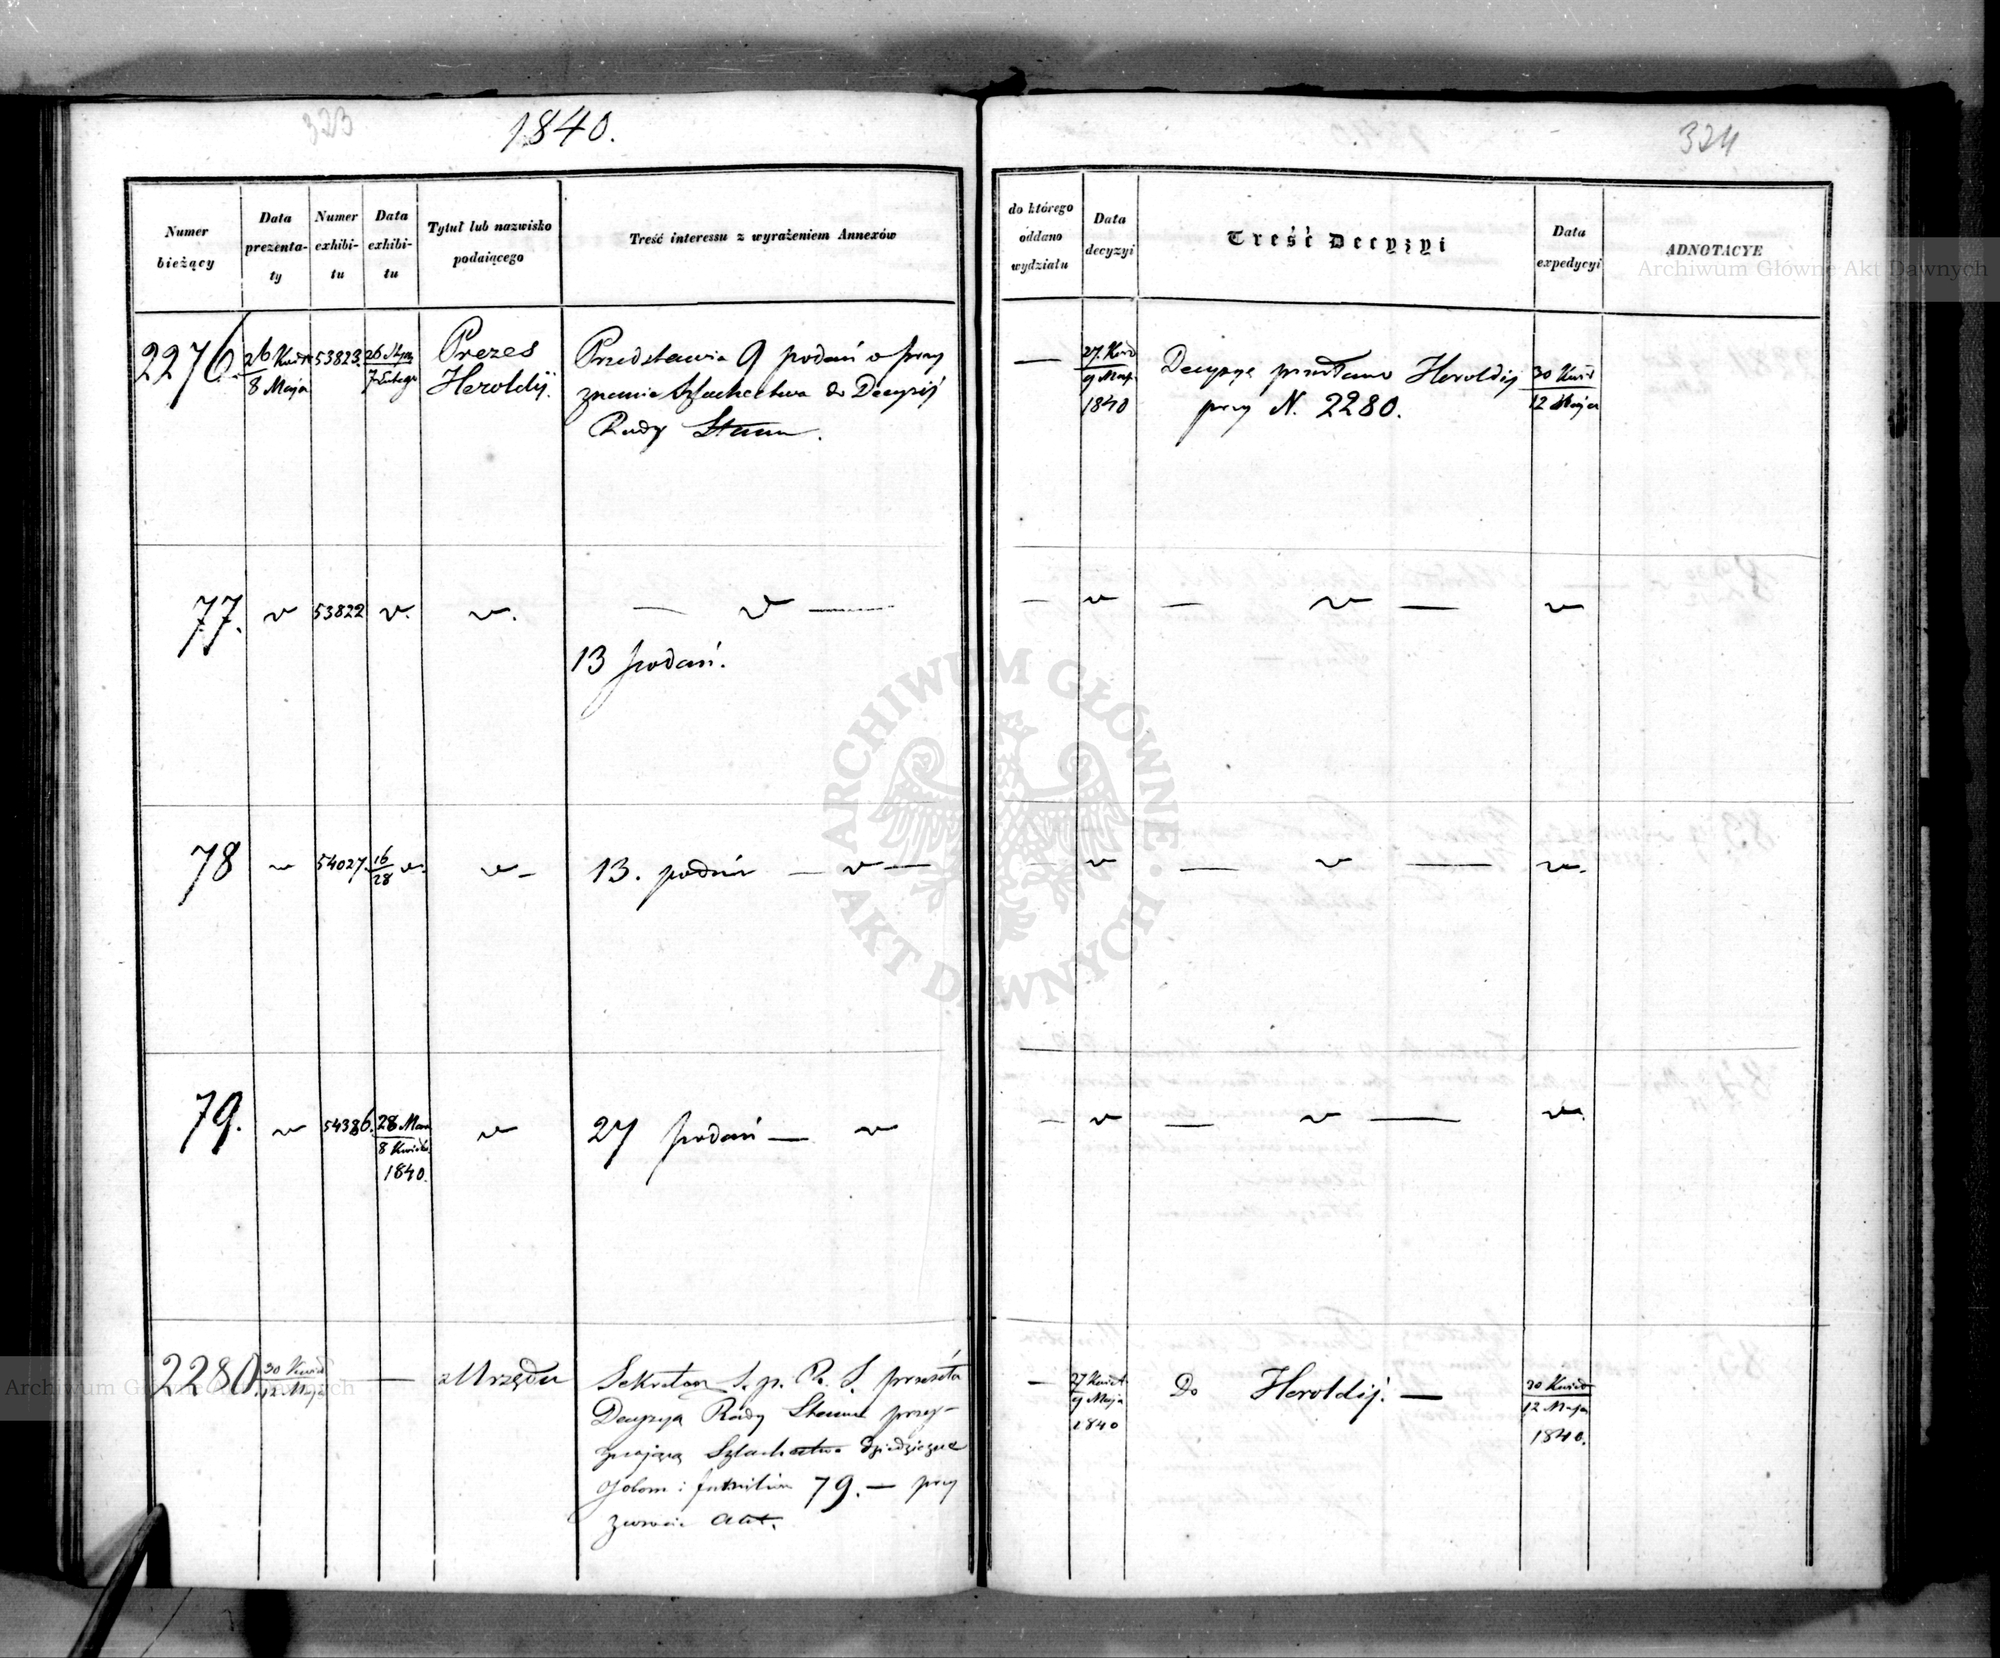 323
1840.
324
Numer bieżący
Data prezentaty
Numer exhibitu
Data exhibitu
Tytuł lub nazwisko podaiącego
Treść interessu z wyrażeniem Annexów
do którego oddano wydziału
Data decyzyi
Treść Decyzyi
Data expedycyi
ADNOTACYE
2276.
8 Maja
53823.
Prezes
Heroldij.
Przedstawia 9 podań o przy
znanie Szlachectwa do Decyzij
Rady Stanu.
—
1840
Decyzyę przesłano Heroldij
przy N. 2280.
12 Maja
77.
v
53822
v.
v.
— v —
13 podań.
—
v
— v —
v
78
v
54027.
16
28 v.
v –
13. podań — v —
v
— v —
v.
79.
v
54386.
28 Mar
8 Kwiet
1840.
v
27 podań — v
—
v
— v —
v.
2280.
30 Kwiet
12 Maja
—
—
z Urzędu
Sekretarz S. p. R. S. przesyła
Decyzyą Rady Stanu przy-
znającą Szlachectwo dziedziczne
osobom i familiom 79. — przy
zwrocie akt.
—
27 Kwiet
9 Maja
1840
Do Heroldij. —
30 Kwiet
12 Maja
1840.
ARCHIWUM GŁÓWNE AKT DAWNYCH
Archiwum Główne Akt Dawnych
Archiwum Główne Akt Dawnych